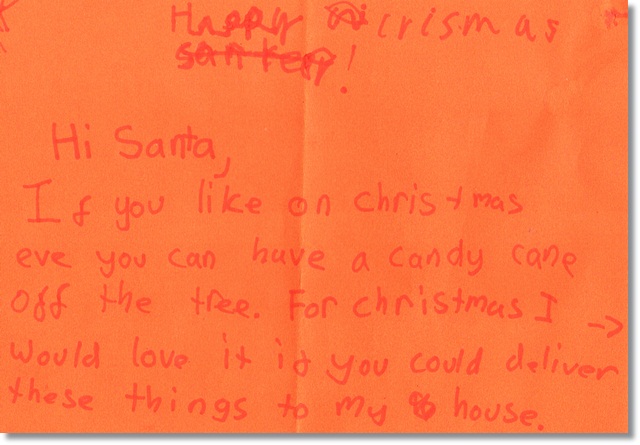 Happy crismas
santer!
Hi Santa,
If you like on christmas
eve you can have a candy cane
off the tree. For christmas I →
would love it if you could deliver
these things to my house.